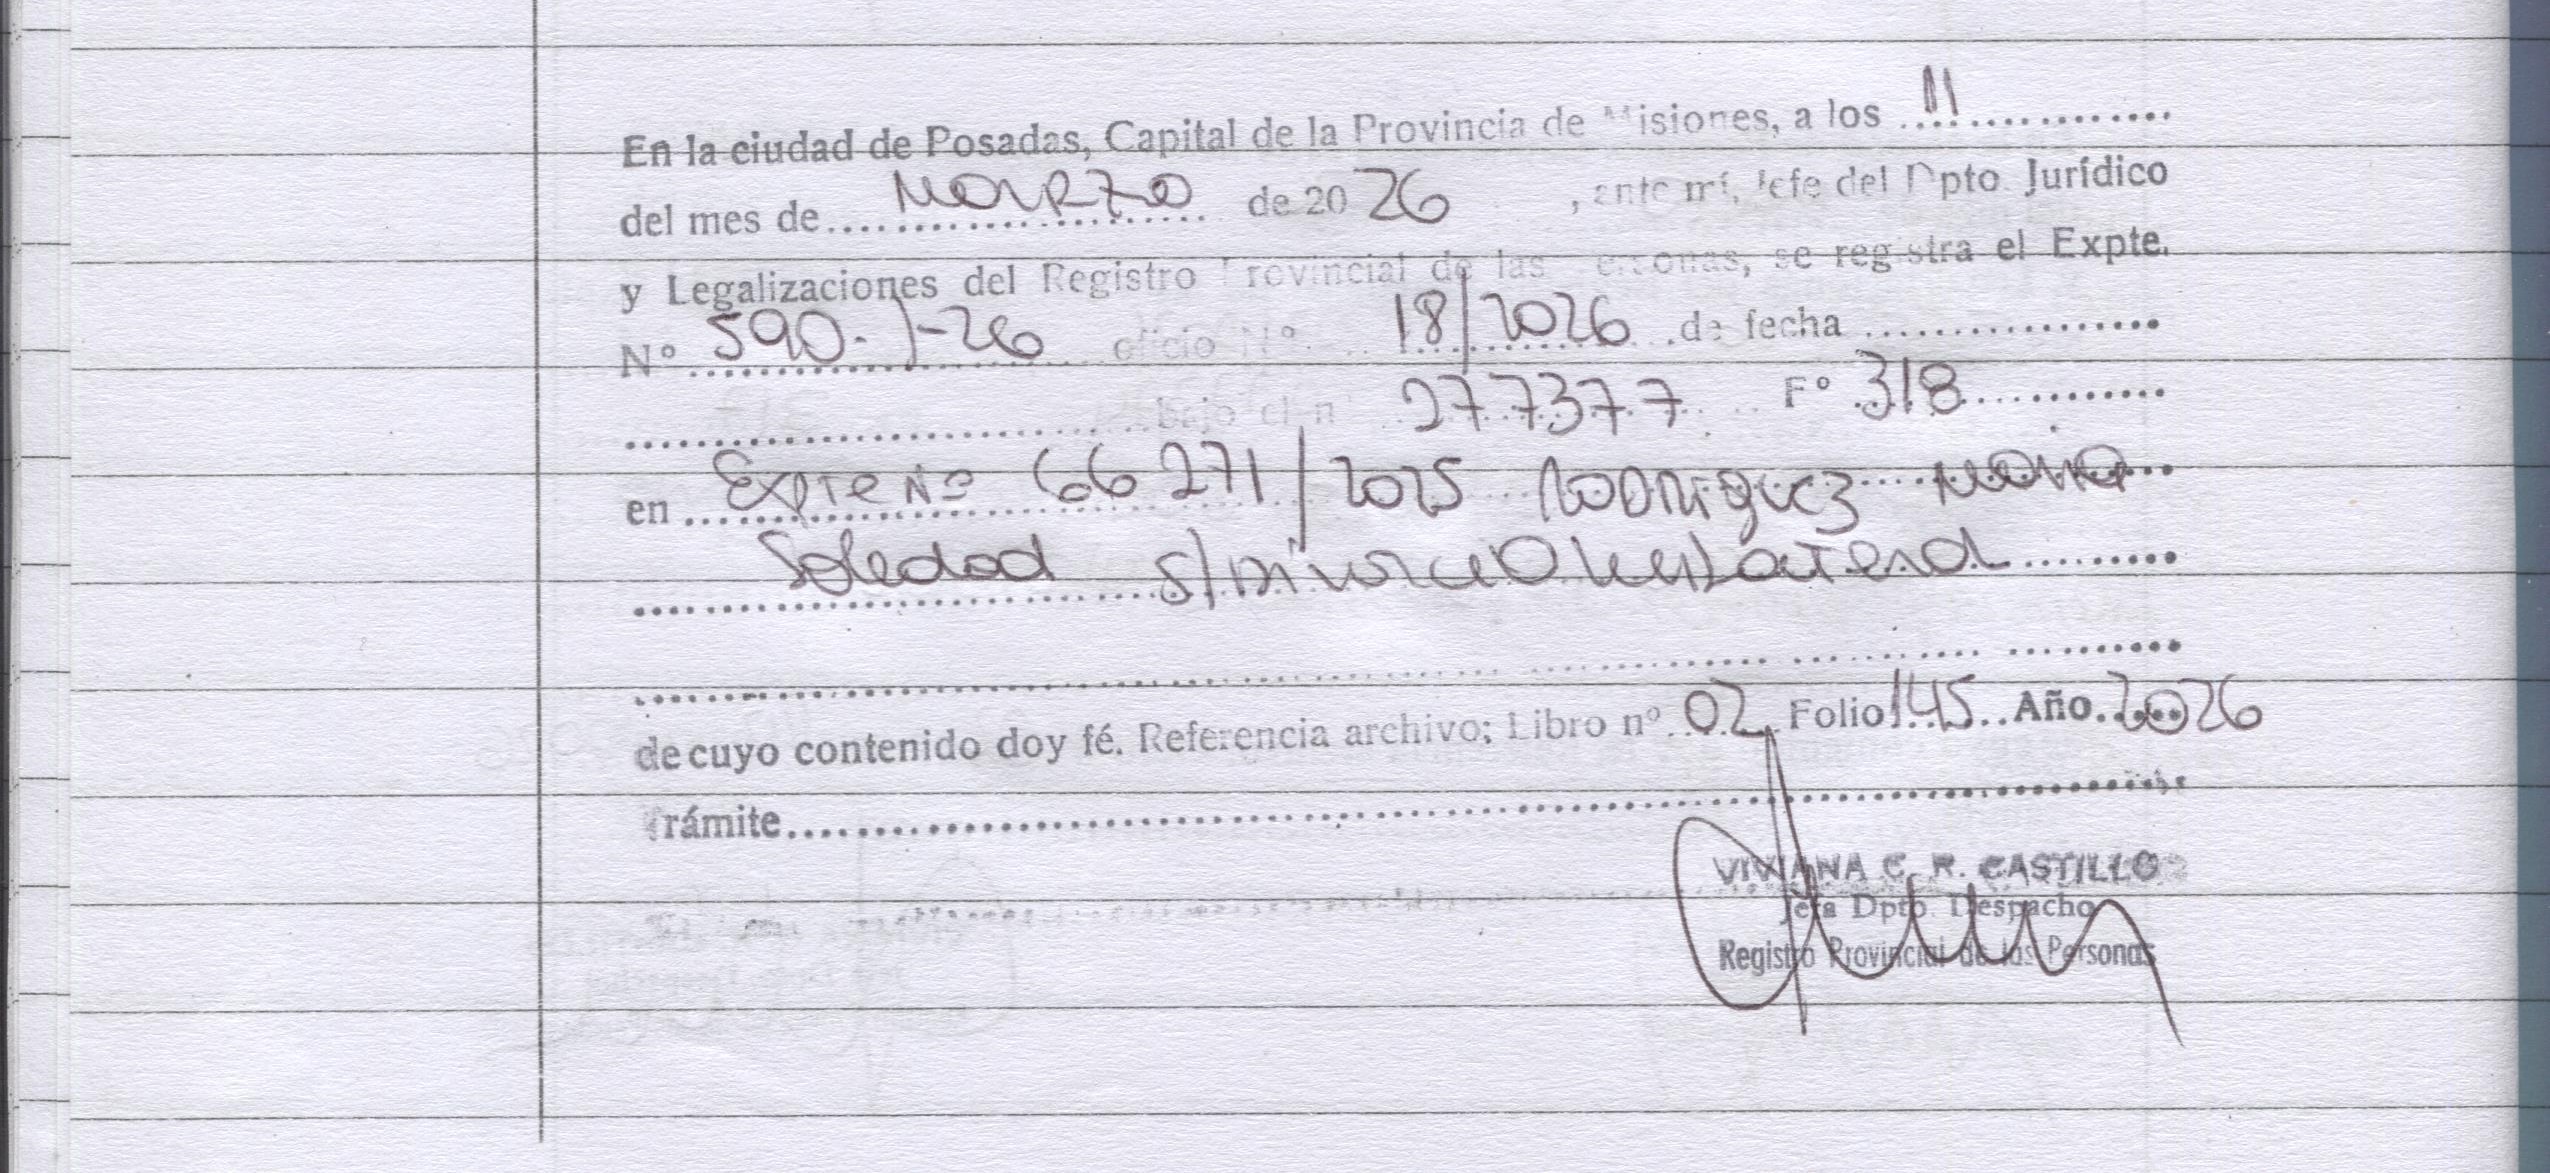 En la ciudad de Posadas, Capital de la Provincia de Misiones, a los 11
del mes de Marzo de 2026, ante mí, Jefe del Dpto. Jurídico
y Legalizaciones del Registro Provincial de las Personas, se registra el Expte.
Nº 590-J-26 oficio Nº 18/2026 de fecha
bajo el nº 277377 Fº 318
en Expte Nº 66271/2025 RODRIGUEZ MARIA
Soledad s/Divorcio Unilateral
de cuyo contenido doy fé. Referencia archivo; Libro nº 02 Folio 145 Año 2026
Trámite
VIVIANA C. R. CASTILLO
Jefa Dpto. Despacho
Registro Provincial de las Personas